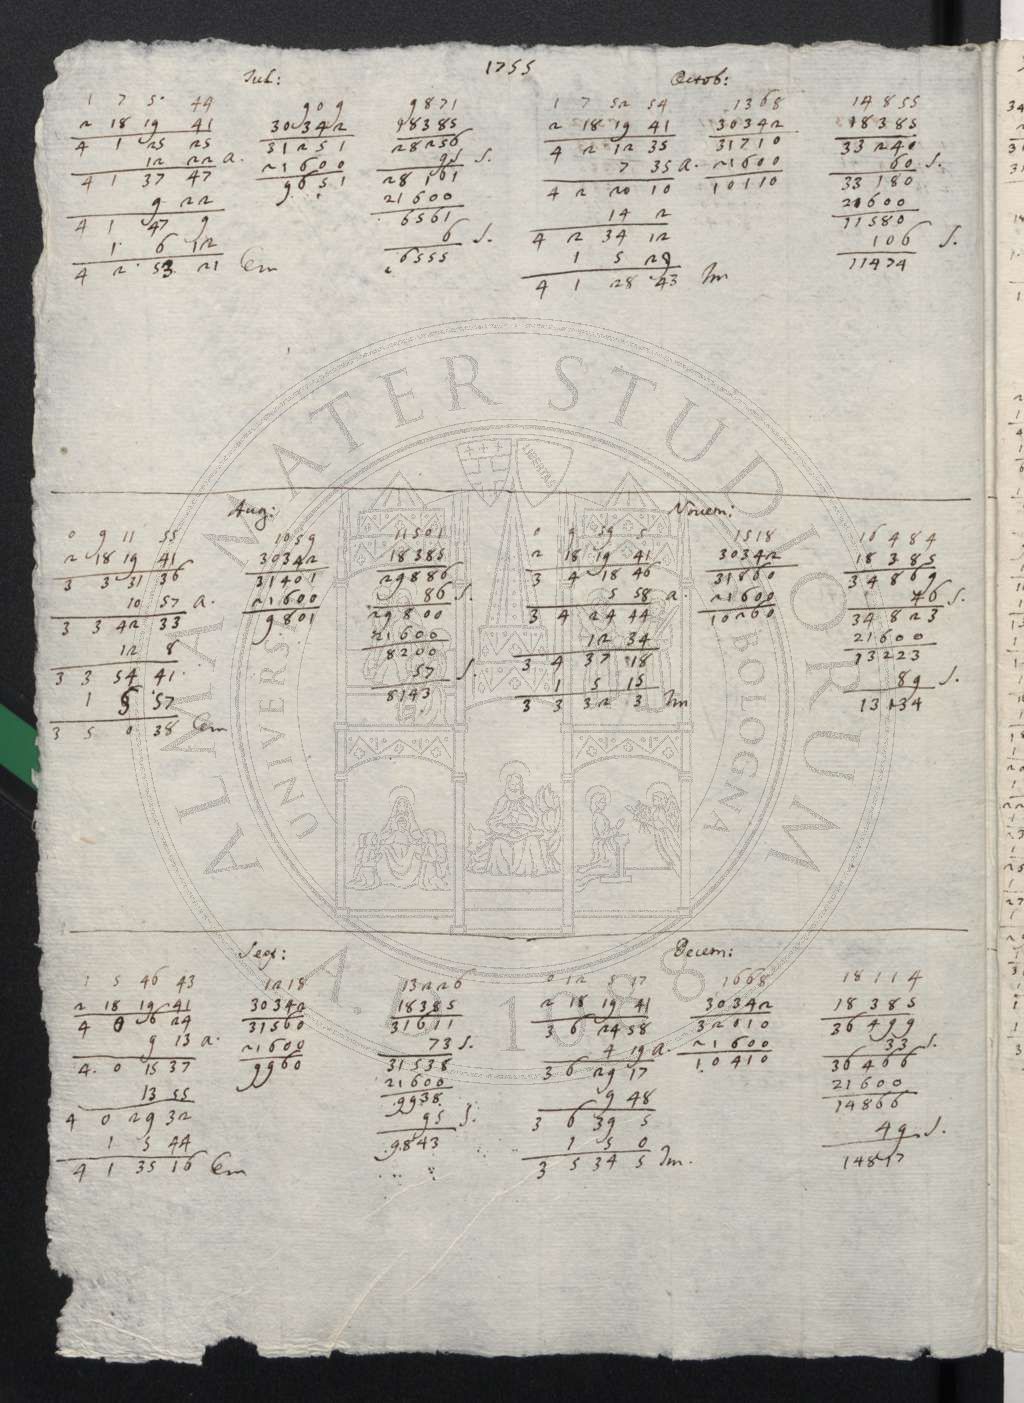 1755
Jul:
1 7 5 44 909 9871
2 18 19 41 30342 18385
4 1 25 25 31251 28256
12 22 a. 21600 95 S.
4 1 37 47 9651 28161
9 22 21600
4 1 47 9 6561
1 6 12 6 S.
4 2 53 21 Em 6555
Octob:
1 7 52 54 1368 14855
2 18 19 41 30342 18385
4 2 12 35 31710 33240
7 35 a. 21600 60 S.
4 2 20 10 10110 33180
14 2 21600
4 2 34 12 11580
1 5 29 106 S.
4 1 28 43 Im 11474
Aug:
0 9 11 55 1059 11501
2 18 19 41 30342 18385
3 3 31 36 31401 29886
10 57 a. 21600 86 S.
3 3 42 33 9801 29800
12 8 21600
3 3 54 41 8200
1 5 57 57 S.
3 5 0 38 Em 8143
Novem:
0 9 59 5 1518 16484
2 18 19 41 30342 18385
3 4 18 46 31860 34869
5 58 a. 21600 46 S.
3 4 24 44 10260 34823
12 34 21600
3 4 37 18 13223
1 5 15 89 S.
3 3 32 3 Im 13134
Sep:
1 5 46 43 1218 13226
2 18 19 41 30342 18385
4 0 6 24 31560 31611
9 13 a. 21600 73 S.
4 0 15 37 9960 31538
13 55 21600
4 0 29 32 9938
1 5 44 95 S.
4 1 35 16 Em 9843
Decem:
0 12 5 17 1668 18114
2 18 19 41 30342 18385
3 6 24 58 32010 36499
4 19 a. 21600 33 S.
3 6 29 17 10410 36466
9 48 21600
3 6 39 5 14866
1 5 0 49 S.
3 5 34 5 Im. 14817
ALMA MATER STUDIORUM
UNIVERS BOLOGNA
LIBERTAS
A. 1088